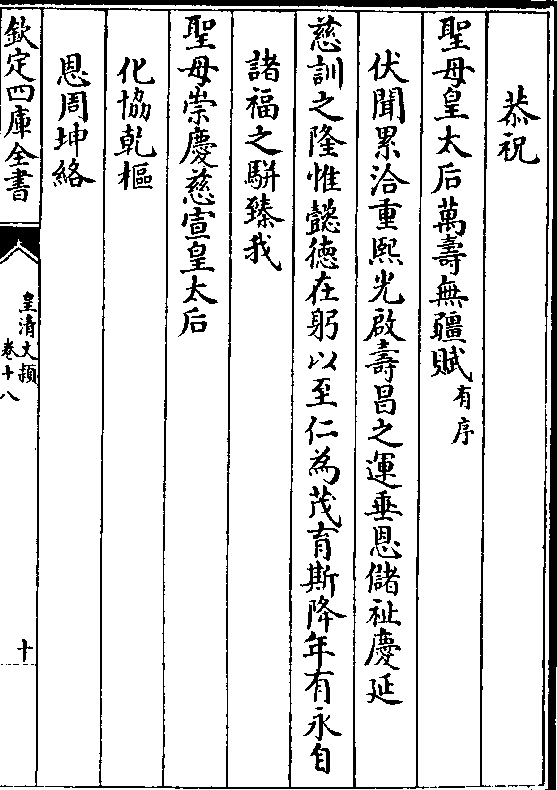 恭祝
聖母皇太后萬壽無疆賦有序
伏聞累洽重熙光啟壽昌之運垂恩儲祉慶延
慈訓之隆惟懿德在躬以至仁為茂育斯降年有永自
諸福之駢臻我
聖母崇慶慈宣皇太后
化協乾樞
恩周坤絡
欽定四庫全書
皇清文穎
卷十八
十